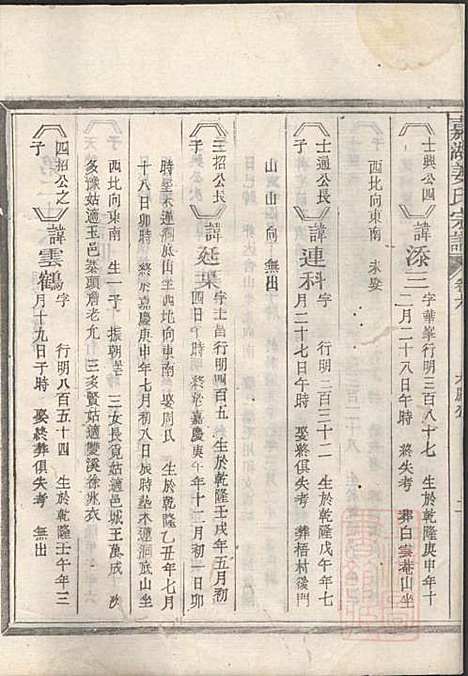 嘉湖姜氏宗譜 卷九
士興公四
子
諱添三
字華峯行明三百八十七 生於乾隆庚申年十
二月二十八日午時 終失考 葬白雲菴山坐
西北向東南 未娶
士過公長
子
諱連科
字 行明三百三十二 生於乾隆戊午年七
月二十七日午時 娶終俱失考 葬梧村後門
山 山向
三招公長
子
諱延葉
字士啚行明四百五 生於乾隆壬戌年五月初
四日午時 終於嘉慶庚午年十二月初一日卯
時墊木連洞底山坐西北向東南 娶周氏 生於乾隆乙丑年七月
十八日卯時 終於嘉慶庚申年七月初八日辰時墊木連洞底山坐
西北向東南 生一子 振朝 三女長覓姑適邑城王萬成 次
多嫁姑適玉邑葉頭詹老允 三亥賢姑適雙溪徐兆衣
四招公之
子
諱雲鶴
字 行明八百五十四 生於乾隆壬午年三
月十九日子時 娶終葬俱失考 無出